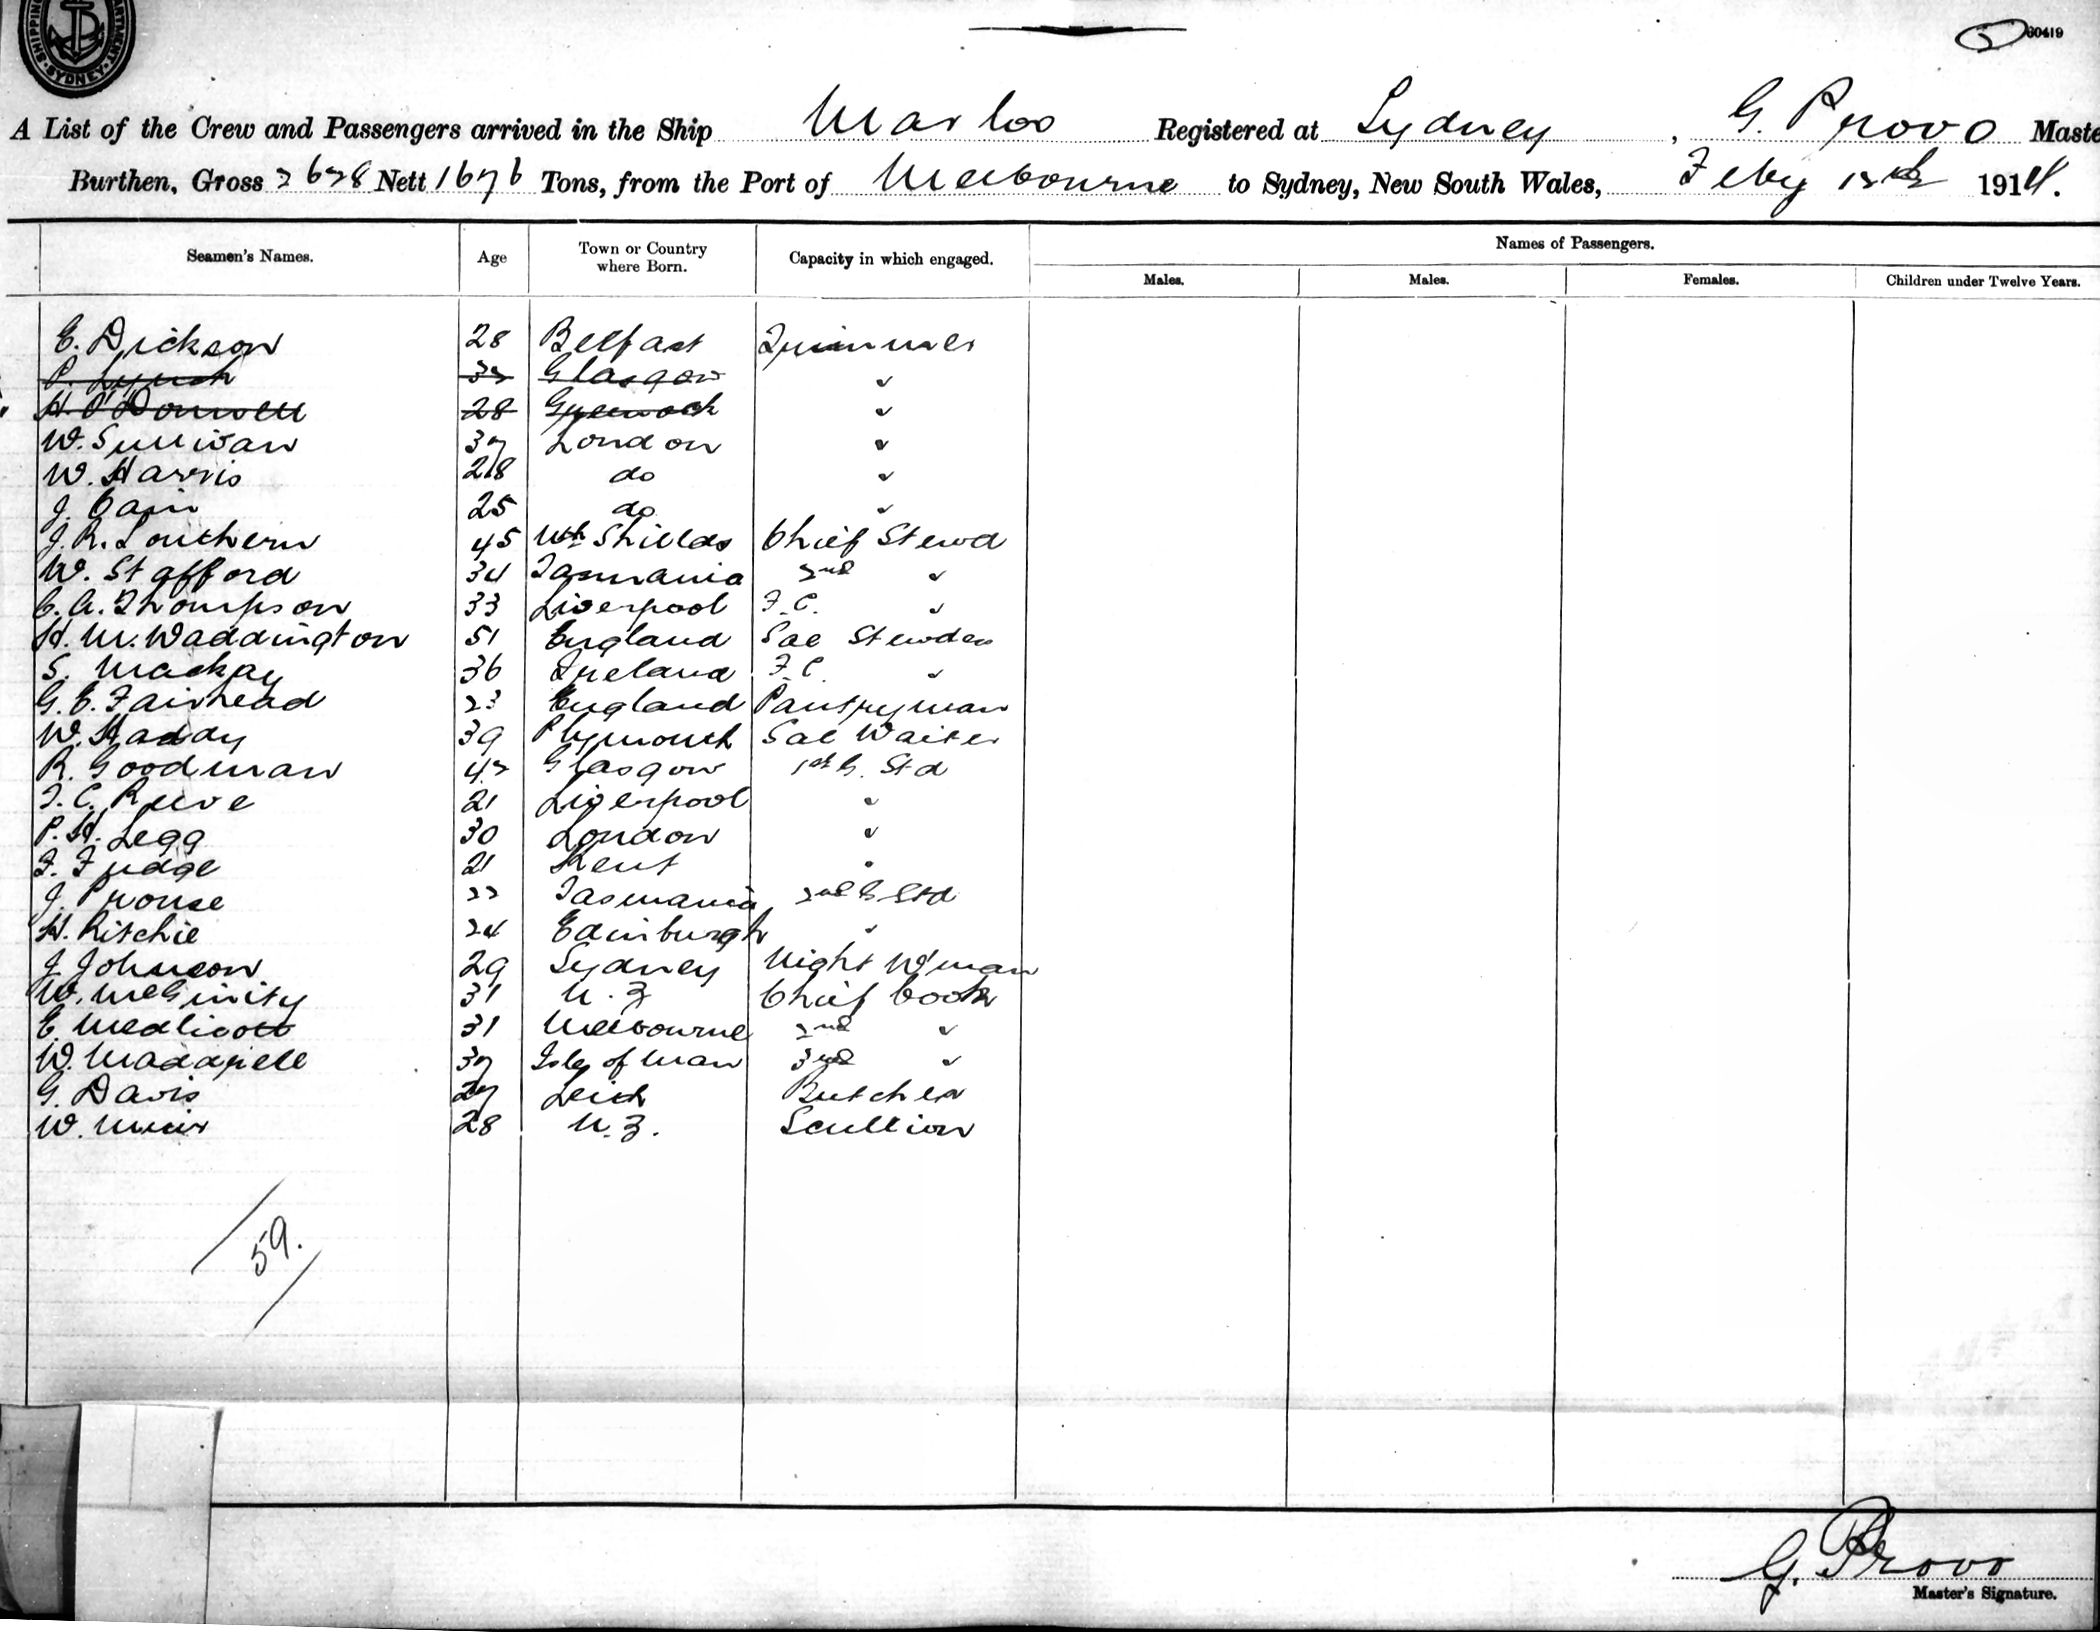 SHIPPING DEPARTMENT SYDNEY
60419
A List of the Crew and Passengers arrived in the Ship Marloo Registered at Sydney, G. Provo Maste
Burthen, Gross 2628 Nett 1676 Tons, from the Port of Melbourne to Sydney, New South Wales, Feby 1914.
Names of Passengers.
Seamen's Names. Age Town or Country where Born. Capacity in which engaged. Males. Males. Females. Children under Twelve Years.
E. Dickson 28 Belfast Trimmer
P. Lynch 32 Glasgow "
H. O'Donnell 28 Greenock "
W. Sullivan 37 London "
W. Harris 28 do "
J. Cain 25 do "
J. R. Southern 45 Nth Shields Chief Stewd
W. Stafford 34 Tasmania 2nd "
C. A. Thompson 33 Liverpool F.C. "
H. M. Waddington 51 England Sal Stewdess
S. Mackay 36 Ireland F.C. "
G. E. Fairhead 23 England Pantryman
W. Haday 39 Plymouth Sal Waiter
R. Goodman 42 Glasgow 1st S. Std
T. C. Reeve 21 Liverpool "
P. H. Legg 30 London "
F. Fudge 21 Kent "
J. Prouse 22 Tasmania 2nd S Std
H. Ritchie 24 Edinburgh "
J. Johnson 29 Sydney Night W'man
W. McGinity 31 N.Z Chief Cook
E. Medlicott 31 Melbourne 2nd "
W. Maddrell 37 Isle of Man 3rd "
G. Davis 27 Leith Butcher
W. Muir 28 N.Z. Scullion
59.
G. Provo
Master's Signature.